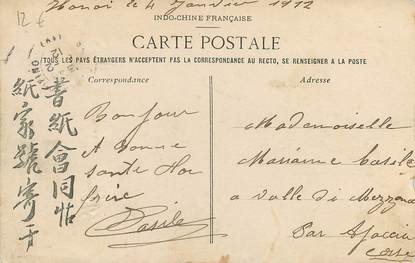 12 €
Hanoi le 4 Janvier 1912
INDO-CHINE FRANÇAISE
CARTE POSTALE
TOUS LES PAYS ÉTRANGERS N'ACCEPTENT PAS LA CORRESPONDANCE AU RECTO, SE RENSEIGNER A LA POSTE
Correspondance
Adresse
Bonjour
A bonne
santé
frère
Casile
書紙會同帖
紙家號寄于
Mademoiselle
Marianne Casile
a Valle di Mezzana
Par Ajaccio
Corse